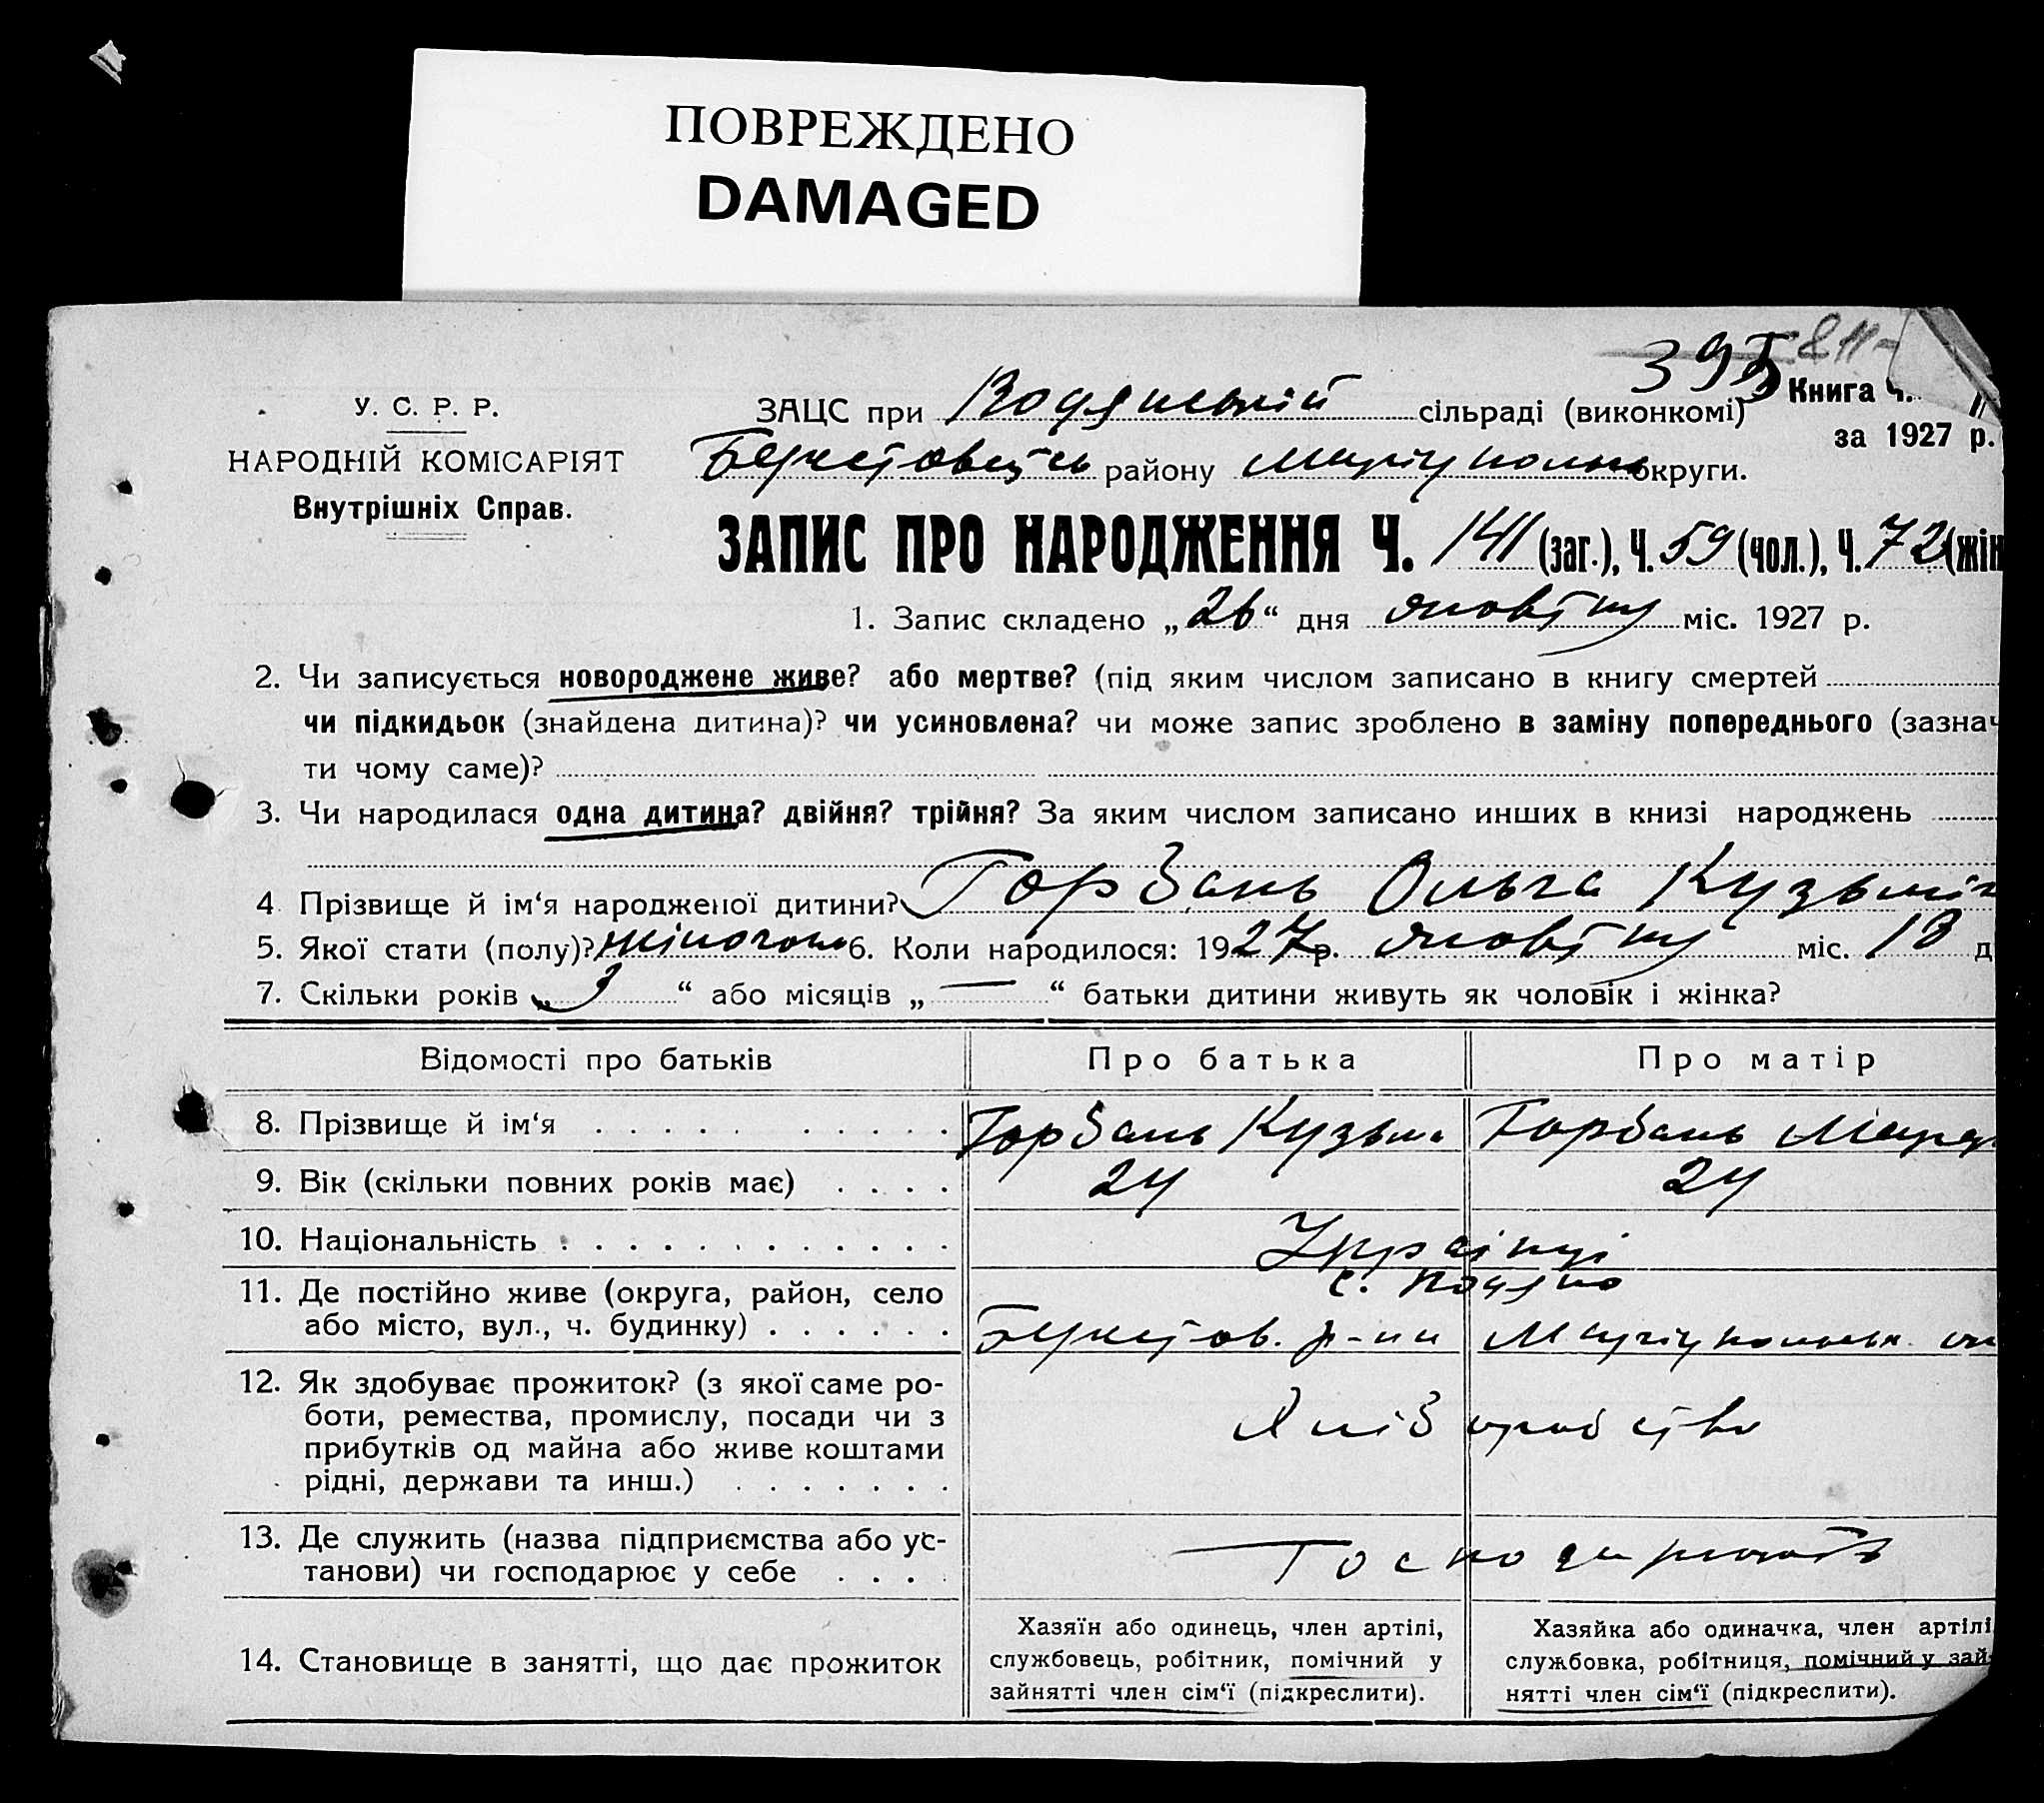 ПОВРЕЖДЕНО
DAMAGED
395 811
У. С. Р. Р.
НАРОДНІЙ КОМІСАРІЯТ
Внутрішніх Справ.
ЗАЦС при Водянській сільраді (виконкомі)
Книга Ч.
за 1927 р.
району округи.
ЗАПИС ПРО НАРОДЖЕННЯ Ч. 141 (заг.), Ч. 59 (чол.), Ч. 72 (жін
1. Запис складено „26“ дня жовтня міс. 1927 р.
2. Чи записується новороджене живе? або мертве? (під яким числом записано в книгу смертей
чи підкидьок (знайдена дитина)? чи усиновлена? чи може запис зроблено в заміну попереднього (зазнач
ти чому саме)?
3. Чи народилася одна дитина? двійня? трійня? За яким числом записано инших в книзі народжень
4 Прізвище й ім‘я народженої дитини? Горбань Ольга Кузьмін
5. Якої стати (полу)? 6. Коли народилося: 1927 р. жовтня міс. 18 д
7. Скільки років „3“ або місяців „—“ батьки дитини живуть як чоловік і жінка?
Відомості про батьків Про батька Про матір
8. Прізвище й ім‘я Горбань Кузьма Горбань
9. Вік (скільки повних років має) 24 24
10. Національність Українці
11. Де постійно живе (округа, район, село
або місто, вул., ч. будинку)
12. Як здобуває прожиток? (з якої саме ро-
боти, ремества, промислу, посади чи з
прибутків од майна або живе коштами
рідні, держави та инш.)
Хліборобство
13. Де служить (назва підприємства або ус-
танови) чи господарює у себе
14. Становище в занятті, що дає прожиток
Хазяїн або одинець, член артілі,
службовець, робітник, помічний у
зайнятті член сім‘ї (підкреслити).
Хазяйка або одиначка, член артілі
службовка, робітниця, помічний у зай-
нятті член сім‘ї (підкреслити).